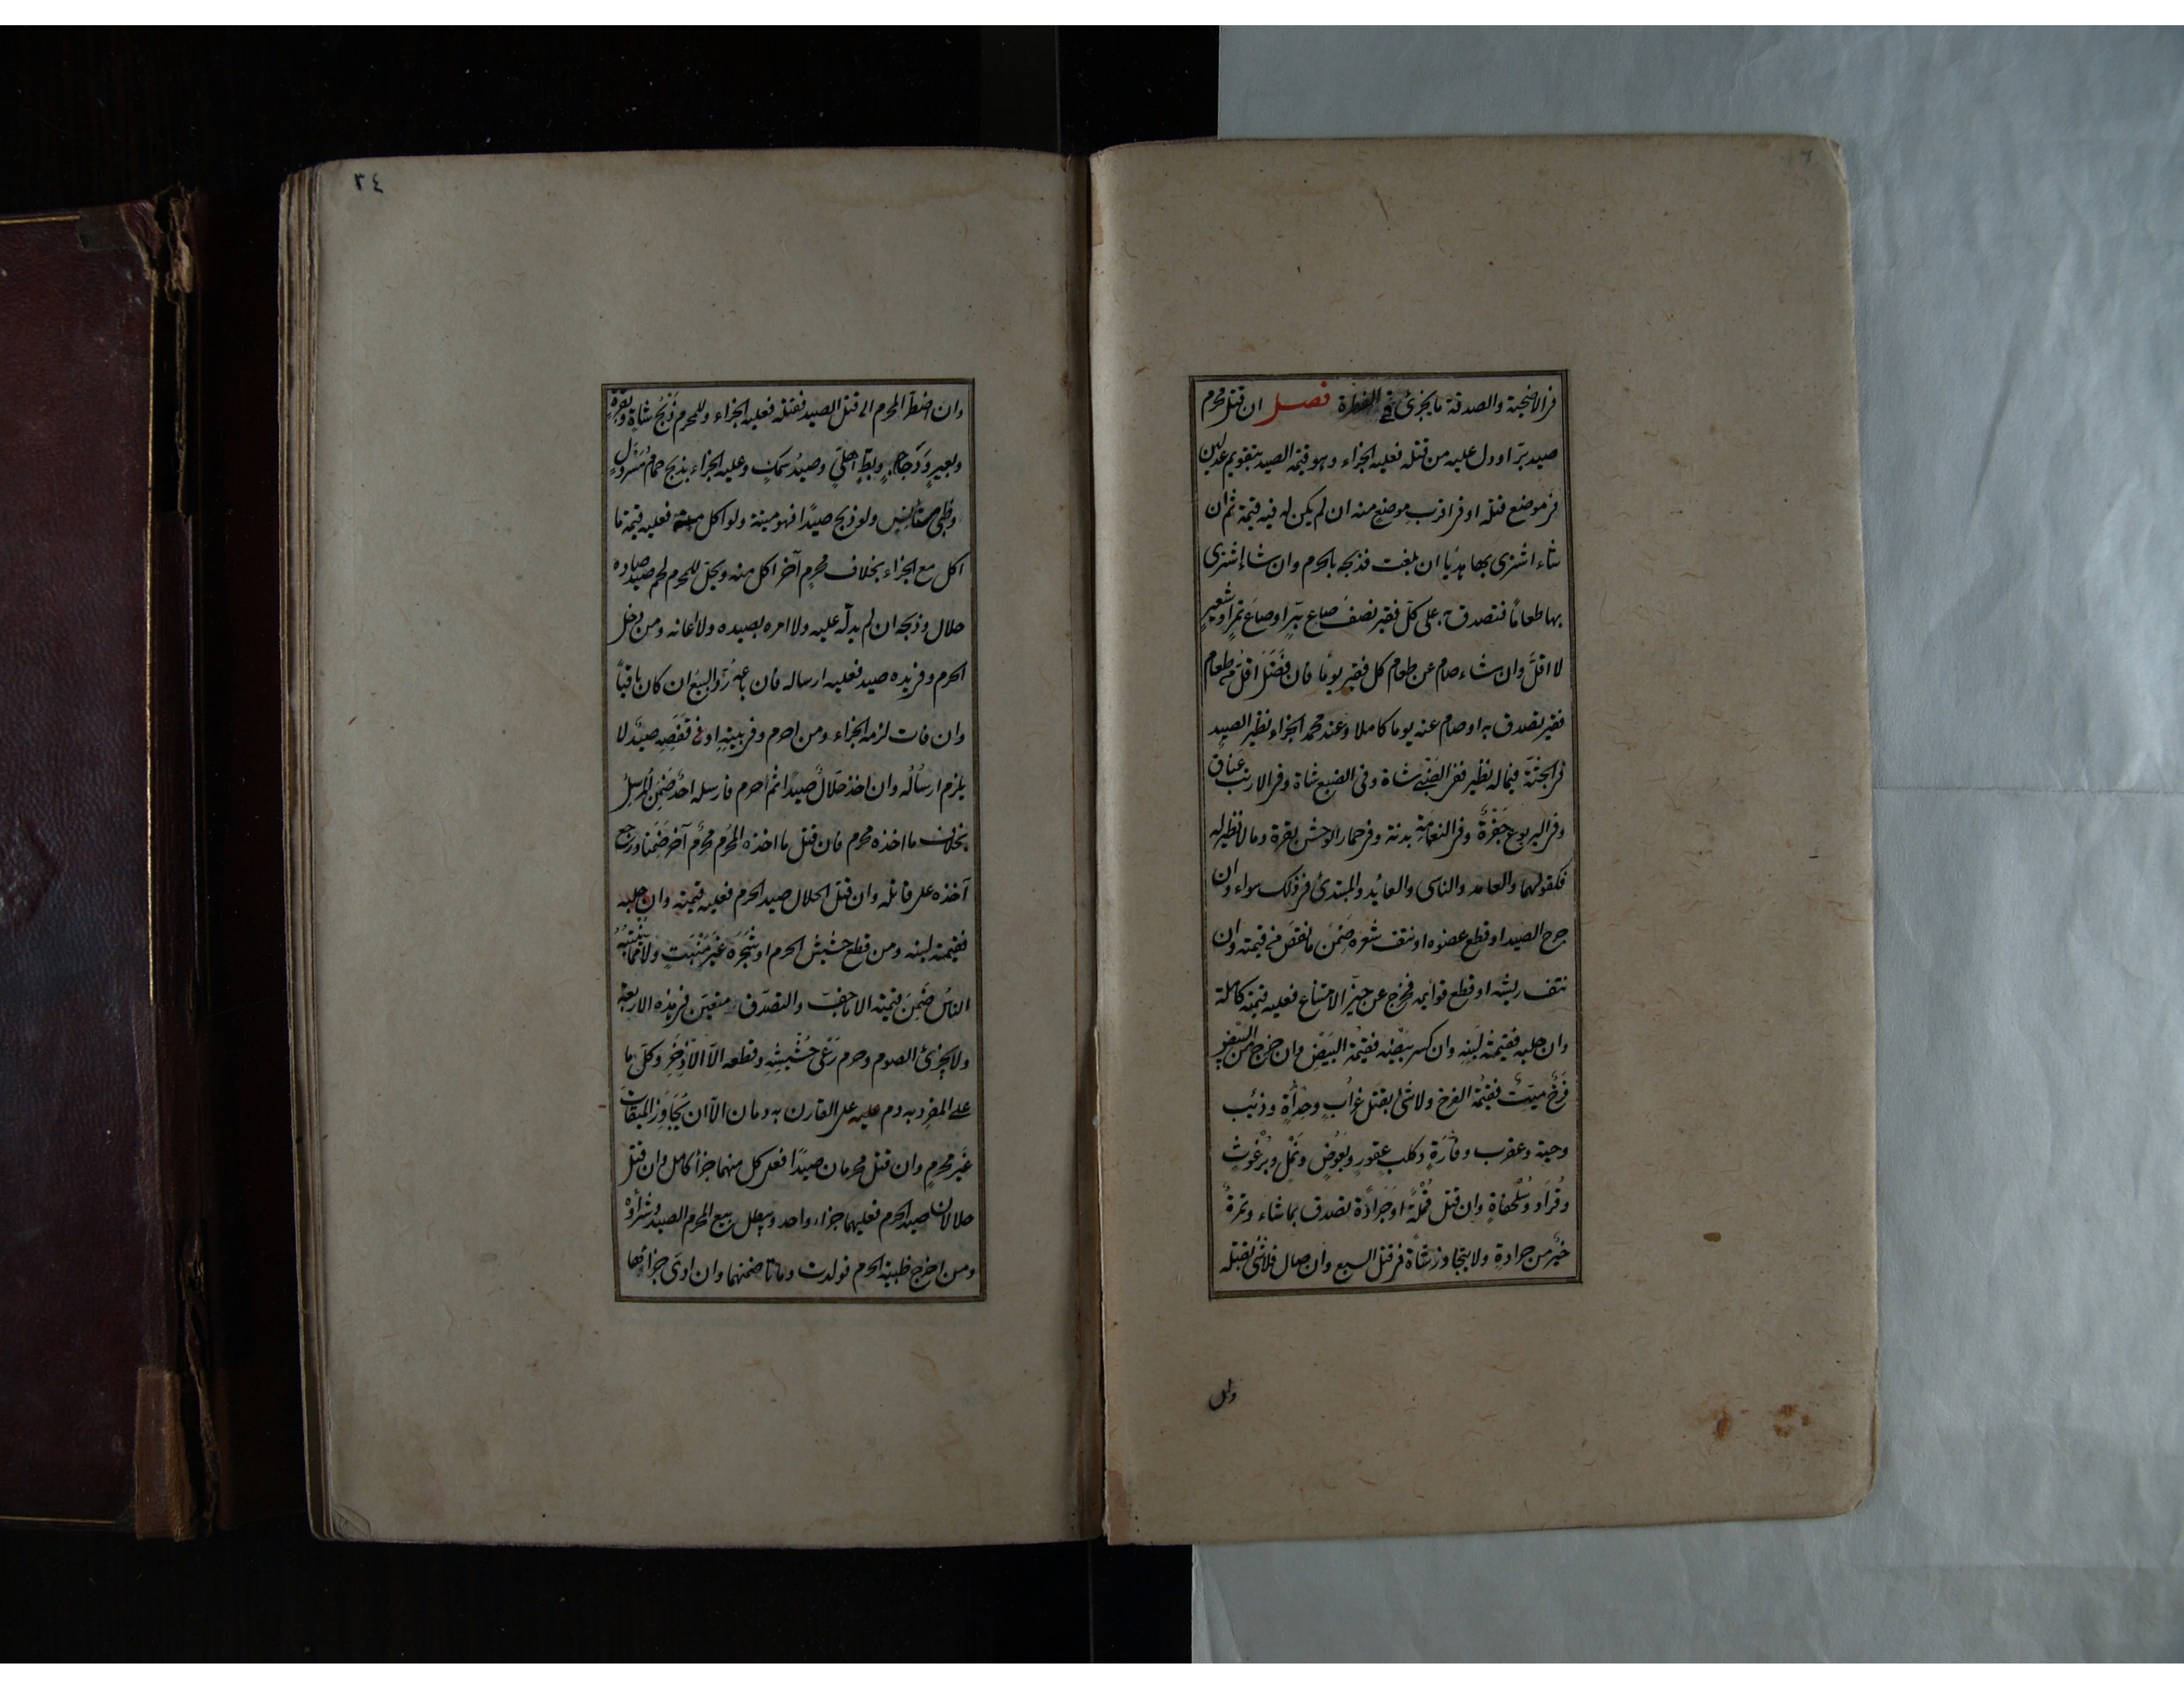 في الاضحية والصدقة ما يجزئ في الفطرة فصل ان قتل محرم
صيد بر او دل عليه من قتله فعليه الجزاء وهو قيمة الصيد بتقويم عدلين
في موضع قتله او في اقرب موضع منه ان لم يكن له فيه قيمة ثم ان
شاء اشترى بها هديا ان بلغت فذبحه بالحرم وان شاء اشترى
بها طعامًا فتصدق به على كلّ فقير نصفُ صاع برٍّ او صاعَ تمرٍ او شعيرٍ
لا اقلَّ وان شاء صام عن طعام كل فقير يومًا فان فَضَلَ اقلُّ من طعام
فقير تصدق به او صام عنه يوما كاملا وعند محمد الجزاء نظير الصيد
في الجثّة فيما له نظير ففي الضَّبْي شاة وفي الضبع شاة وفي الارنب عناق
وفي اليربوع جَفْرَةٌ وفي النعامة بدنة وفي حمار الوحش بقرة وما لا نظير له
فكقولهما والعامد والناسى والعائد والمبتدئ في ذلك سواء وان
جرح الصيد او قطع عضوه او نتف شعره ضَمِنَ ما نقصَ من قيمته وان
نتف ريشه او قطع قوايمه فخرج عن حيّز الامتناع فعليه قيمته كاملة
وان حلبه فقيمة لَبَنِه وان كسر بَيْضَه فقيمة البَيْض وان خرج من البيض
فَرْخٌ ميّتٌ فقيمة الفرخ ولا شئ بقتل غرابٍ وحِدأةٍ وذئب
وحية وعقرب وفأرةٍ وكلب عقورٍ وبَعُوضٍ ونَمْلٍ وبُرْغُوثٍ
وقُرادٍ وسُلَحْفاةٍ وان قتل قَمْلَةً او جَرادَةً تصدق بما شاء وتمرةٌ
خيرٌ من جرادةٍ ولا يتجاوز شاة في قتل السبع وان صال فلا شئ بقتله
وان
٣٤
وان اضطرّ المحرم الى قتل الصيد فقتله فعليه الجزاء وللمحرم ذَبْحُ شاةٍ وبقرةٍ
وبعيرٍ ودَجاجٍ وبطٍّ اهليّ وصيدُ سمكٍ وعليه الجزاء بذبح حمامٍ مُسَرْوَلٍ
وظبى مستأنس ولو ذبح صيدًا فهو ميتة ولو اكل منه فعليه قيمة ما
اكل مع الجزاء بخلاف محرمٍ آخر اكل منه ويحلّ للمحرم لحم صيدٍ صاده
حلال وذبحه ان لم يدلّه عليه ولا امره بصيده ولا اعانه ومن دخل
الحرم وفي يده صيد فعليه ارساله فان باعَهُ رُدَّ البيع ان كان باقيًا
وان فات لزمه الجزاء ومن احرم وفي بيتِه او في قَفَصِه صيدٌ لا
يلزم ارسالُه وان اخذ حلالٌ صيدًا ثم احرم فارسله احدٌ ضَمِنَ المُرسِلُ
بخلاف ما اخذه محرم فان قتل ما اخذه المُحرم محرمٌ آخر ضَمِنا ورجع
آخذه على قاتله وان قتل الحلال صيد الحرم فعليه قيمته وان حلبه
فقيمة لبنه ومن قطع حشيش الحرم او شَجَرَه غيرَ مُنْبَتٍ ولا ممّا يُنْبِتُهُ
الناس ضَمِنَ قيمته الا ما جفّ والتصدّق متعيّن في هذه الاربعة
ولا يجزئ الصوم وحرم رَعْيُ حَشِيشِه وقطعه الّا الاِذْخِر وكلّ ما
على المفرِد به دم عليه على القارن به دمان الّا ان يُجاوِز الميقات
غيرَ محرِمٍ وان قتل محرمان صيدًا فعلى كل منهما جزاءٌ كامل وان قتل
حلالان صيد الحرم فعليهما جزاء واحد ويبطل بيع المحرم الصيد وشراؤه
ومن اخرج ظبية الحرم فولدت وماتا ضمنهما وان ادى جزاءها